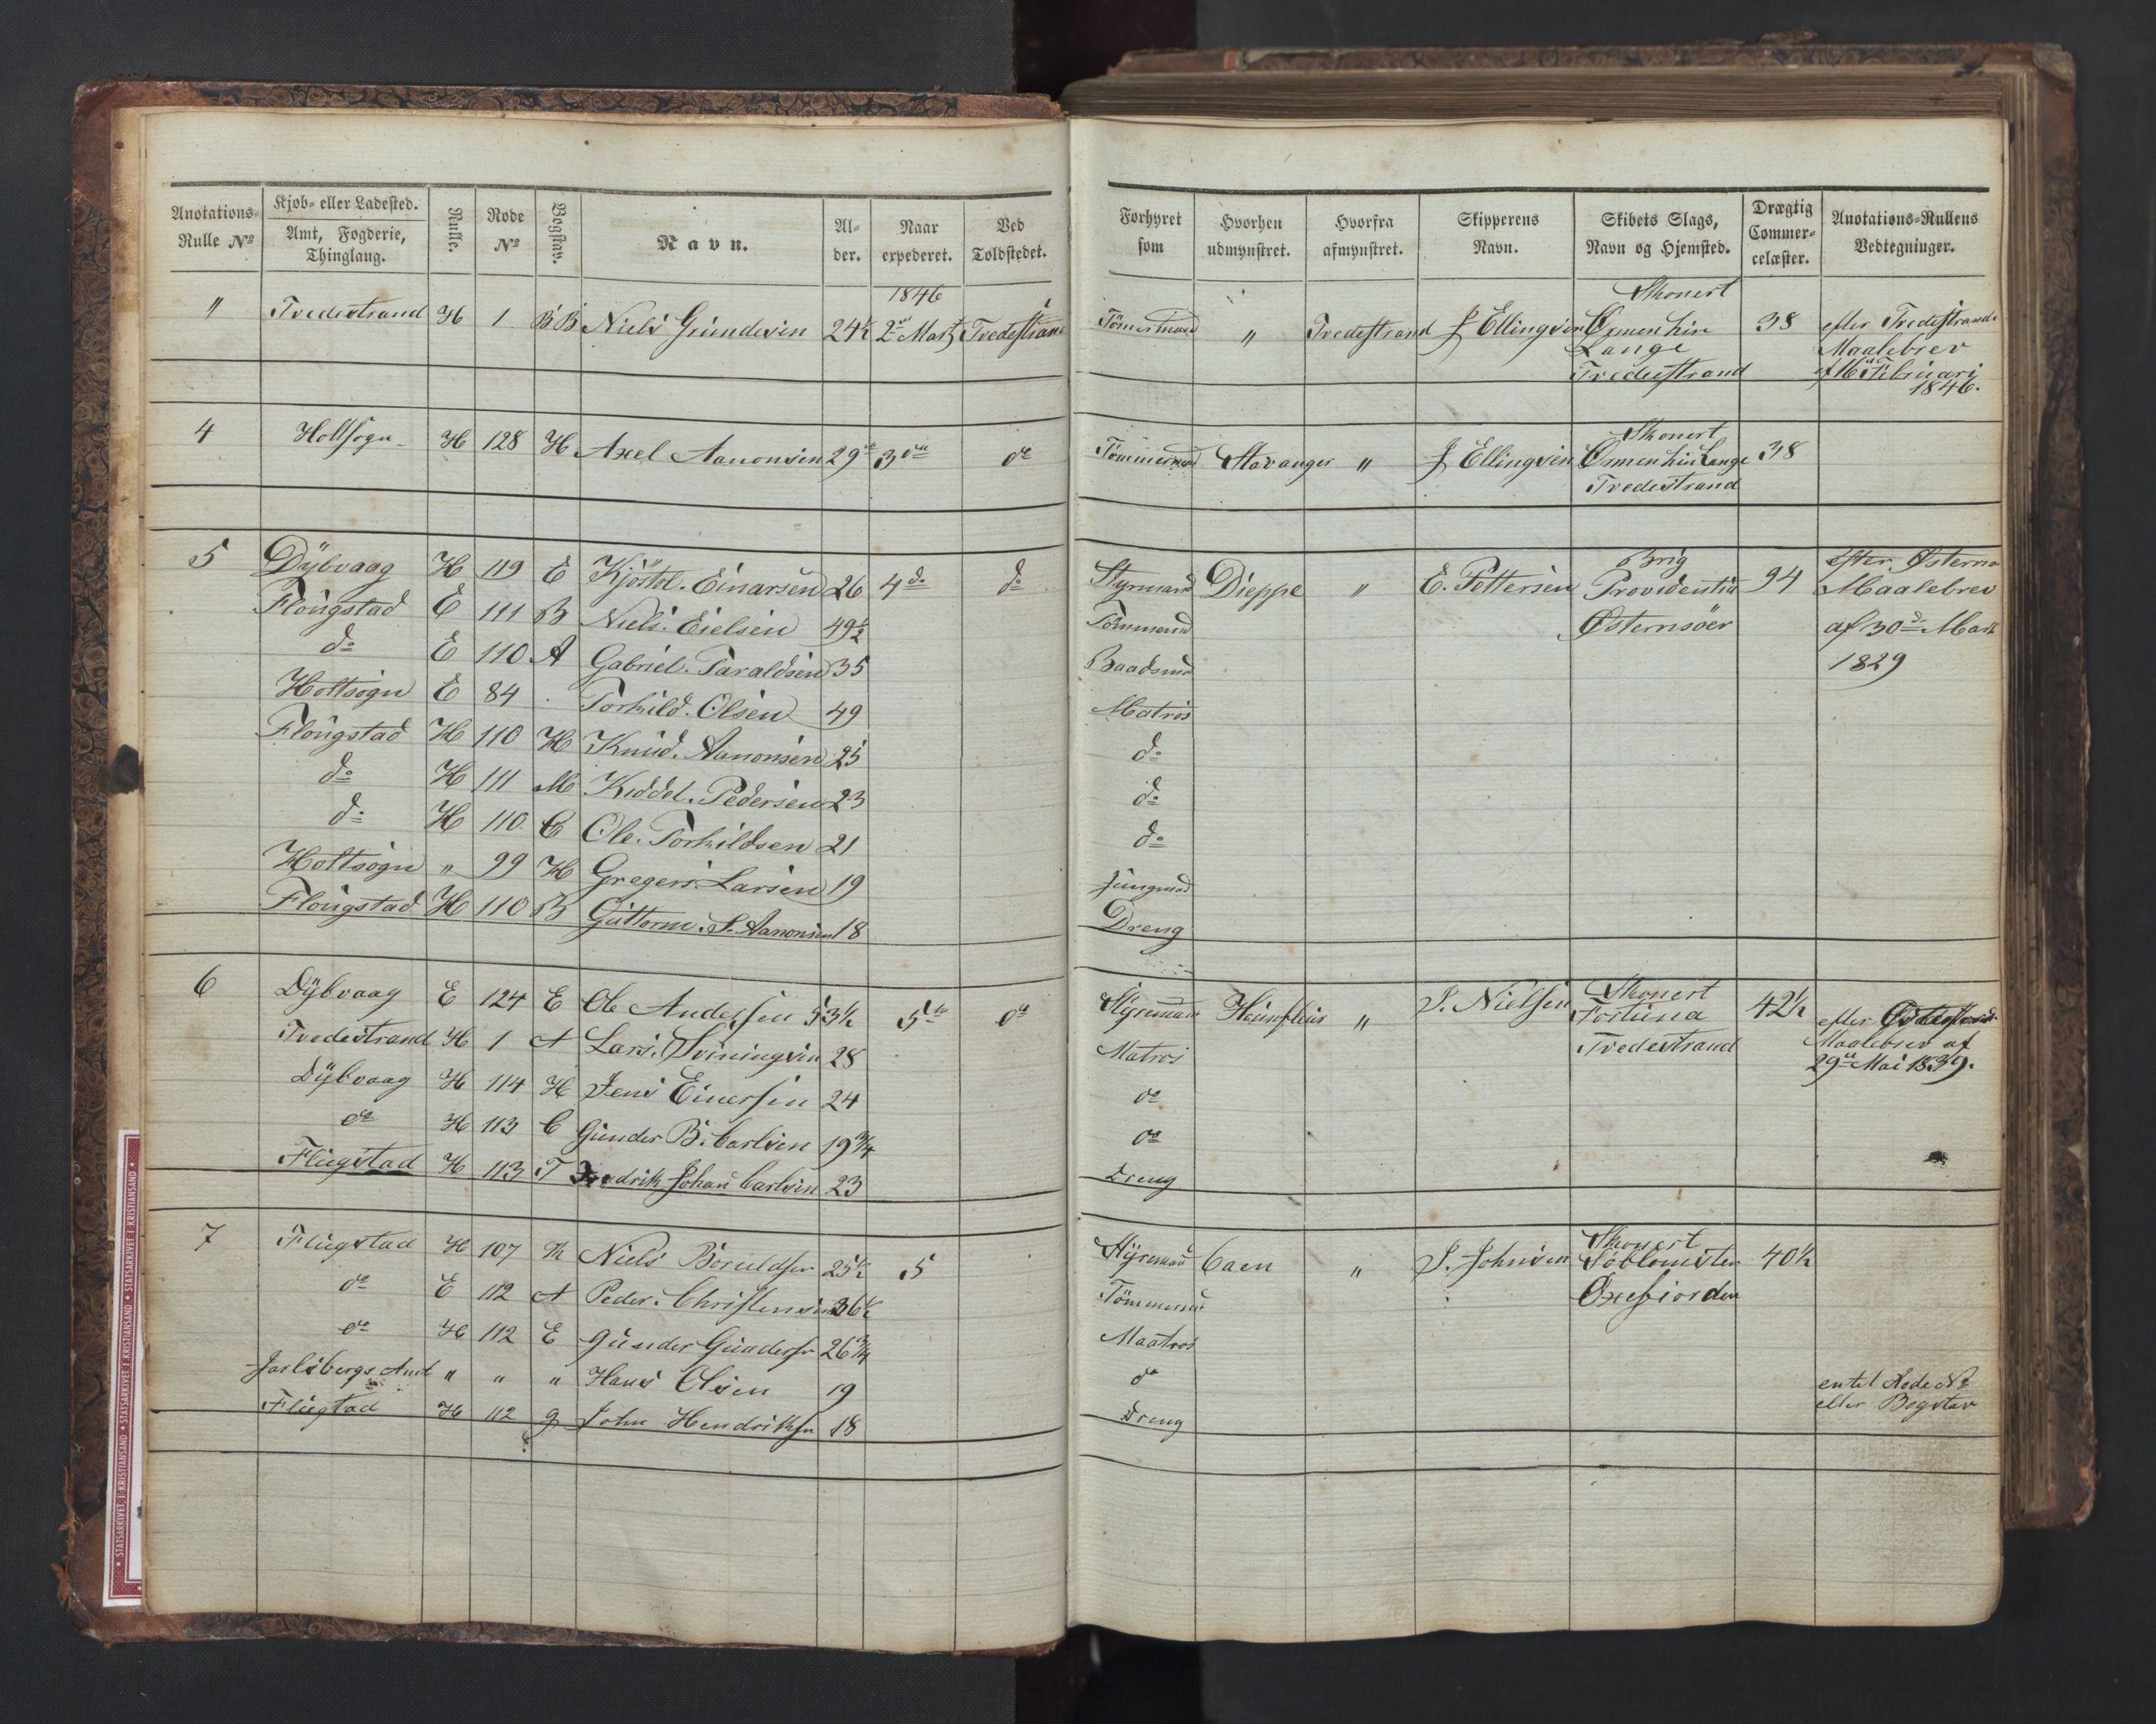 Anotations-Rulle No | Kjøb- eller Ladested. Amt, Fogderie, Thinglaug. | Rulle. | Rode No | Bogstav. | Navn. | Alder. | Naar expederet. | Ved Toldstedet. | Forhyret som | Hvorhen udmynstret. | Hvorfra afmynstret. | Skipperens Navn. | Skibets Slags, Navn og Hjemsted. | Drægtig Commercelæster. | Anotations-Rullens Vedtegninger.
1846
" Tvedestrand H 1 BB Niels Gundersen 24½ 2den Marts Tvedestrand Tömermand " Tvedestrand J Ellingsen Skonert Ormen hin Lange Tvedestrand 38 efter Tvedestrands Maalebrev af Februari 1846.
4 Holtsogn H 128 H Axel Aanonsen 29 3 do Tömmermd Stavanger " J Ellingsen Skonert Ormen hin Lange Tvedestrand 38
5 Dÿbvaag H 119 E Kjöstel. Einarsen 26 4 do do Styrmand Dieppe " E. Pettersen Brig Providentia Østerrisöer 94 efter Østerrs Maalebrev af 30 Marts 1829
Flougstad E 111 B Niels. Eielsen 49½ Tömmermd
do E 110 A Gabriel. Taraldsen 35 Baadsmd
Holtsogn E 84 Torkild. Olsen 49 Matros
Flougstad H 110 H Knud. Aanonsen 25 do
do H 111 M Keddel. Pedersen 23 do
do H 110 C Ole. Torkildsen 21 do
Holtsogn " 99 H Gregers. Larsen 19 Jungmd
Flougstad H 110 B Guttorm. S. Aanonsen 18 Dreng
6 Dÿbvaag E 124 E Ole Andersen 53½ 5te do Styrmand Hounfleur " J. Nielsen Skonert Fortuna Tvedestrand 42½ efter Maalebrev af 29de Mai 1839.
Tvedestrand H 1 A Lars. Svinningsen 28 Matros
Dÿbvaag H 114 H Jens Einersen 24 do
do H 113 C Gunder B. Carlsen 19¾ do
Flugstad H 113 T Fredrik Johan Carlsen 23 Dreng
7 Flugstad H 107 K Niels Boruldsen 25½ 5 Styrmand Caen " J. Johnsen Skonert Söblomsten Oxefiorden 40½
do E 112 A Peder. Christensen 36½ Tömmermd
do H 112 E Gunder Gundersen 26¾ Maatros
Jarlsbergs Amt " " " Hans Olsen 19 do entet Rode No eller Bogstav
Flugtad H 112 g John Hendriksen 18 Dreng
STATSARKIVET I KRISTIANSAND • STATSARKIVET I KRISTIANSAND • STATSARKIVET I KRISTIANSAND